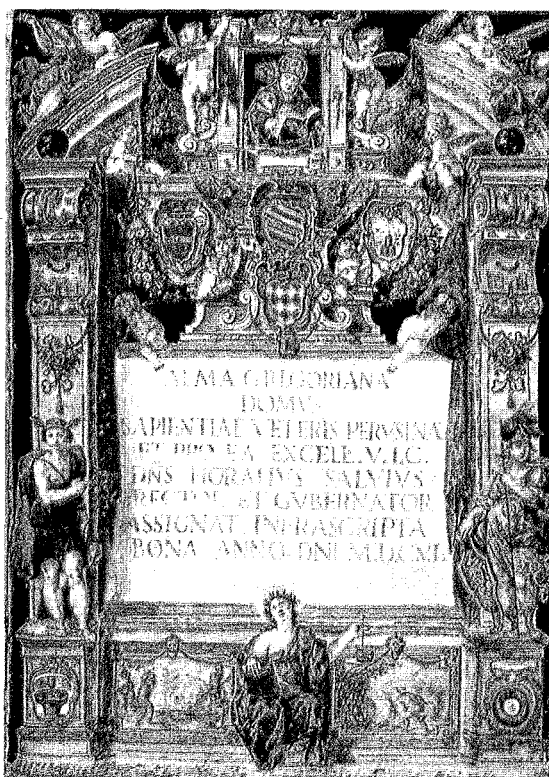 ALMA GREGORIANA
DOMVS
SAPIENTIAE VETERIS PERVSINAE
ET PRO EA EXCELE. V. I. C.
DNS HORATIVS SALVIVS
RECTOR ET GVBERNATOR
ASSIGNAT INFRASCRIPTA
BONA ANNO DNI